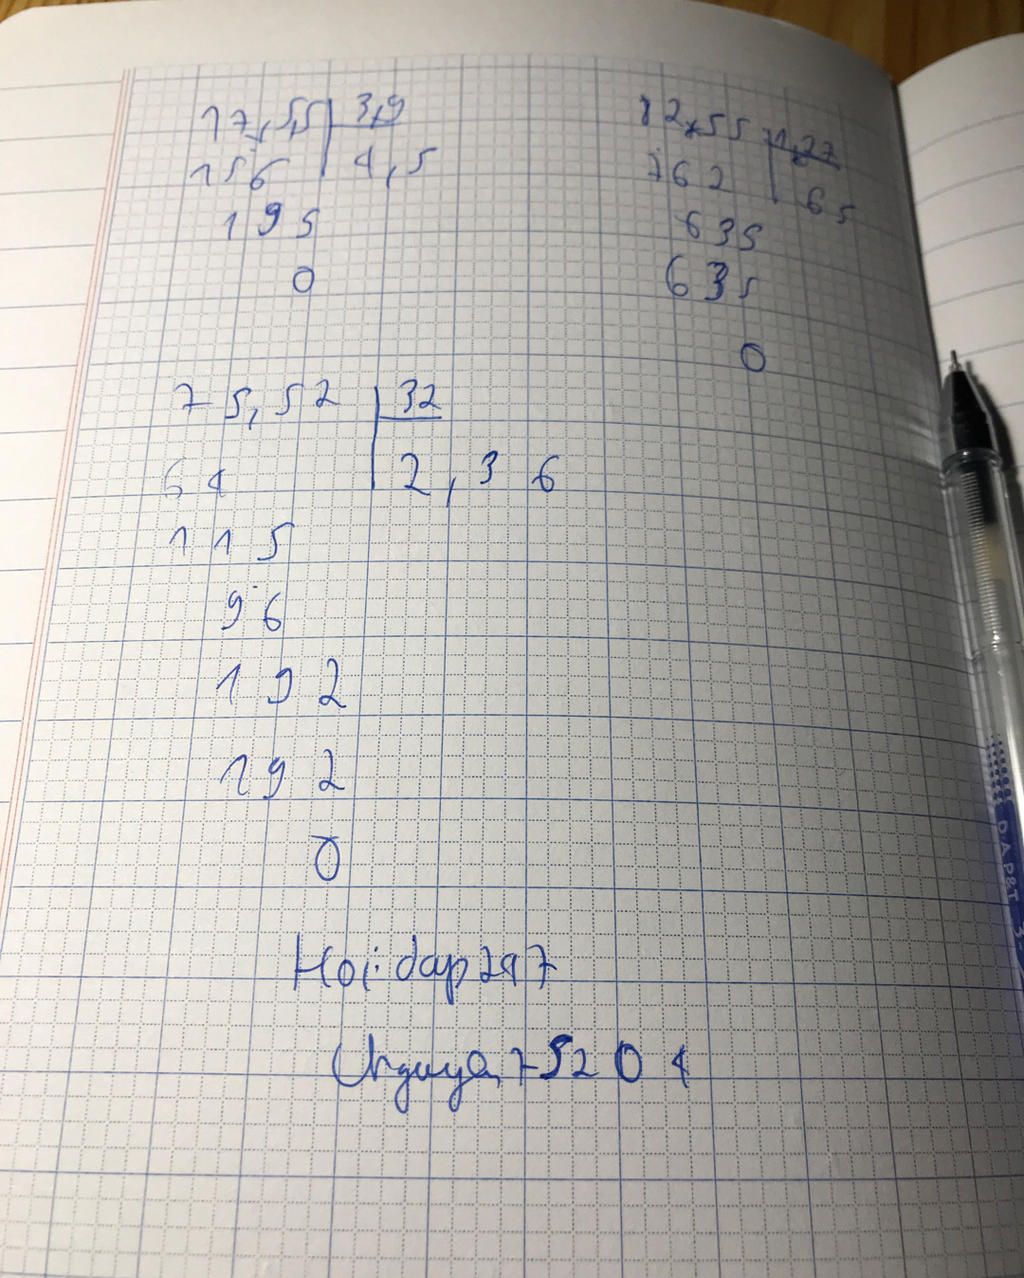 17,5,5 3,9
156 4,5
195
0
82,55 1,27
762 65
635
635
0
75,52 32
64 2,36
115
96
192
192
0
Hoidap247